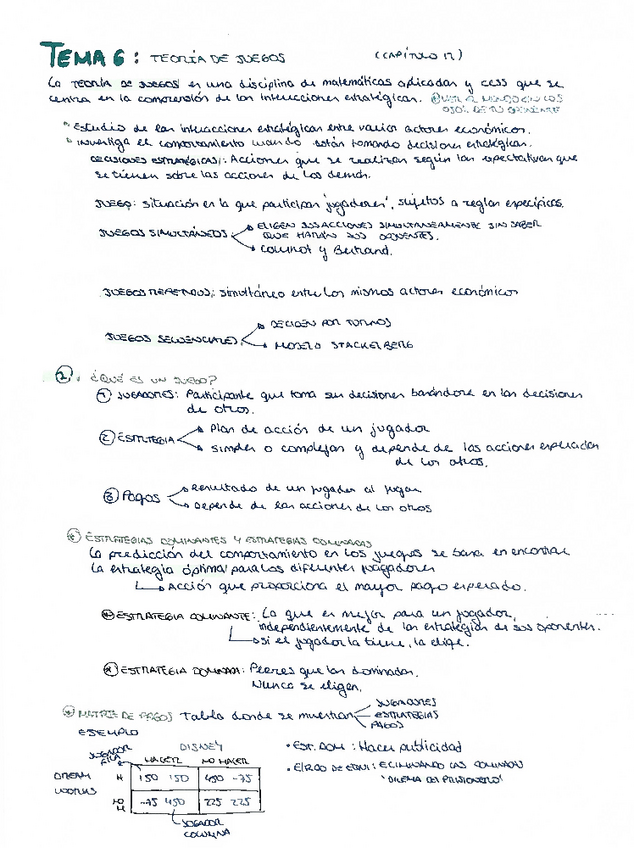 TEMA 6: TEORÍA DE JUEGOS (CAPÍTULO 12)
La TEORÍA DE JUEGOS es una disciplina de matemáticas aplicadas y cess que se
centra en la comprensión de las interacciones estratégicas.
OJOS DE TU OPONENTE
Estudio de las interacciones estratégicas entre varios actores económicos.
Investiga el comportamiento cuando están tomando decisiones estratégicas.
DECISIONES ESTRATÉGICAS: Acciones que se realizan según las expectativas que
se tienen sobre las acciones de los demás.
JUEGO: situación en la que participan 'jugadores', sujetos a reglas específicas.
JUEGOS SIMULTÁNEOS
ELIGEN SUS ACCIONES SIMULTÁNEAMENTE SIN SABER
QUE HARÁN SUS OPONENTES.
Cournot y Bertrand.
JUEGOS REPETIDOS: simultáneo entre los mismos actores económicos
JUEGOS SECUENCIALES
DECIDEN POR TURNOS
MODELO STACKELBERG
2. ¿QUÉ ES UN JUEGO?
1 JUGADORES: Participante que toma sus decisiones basándose en las decisiones
de otros.
2 ESTRATEGIA
Plan de acción de un jugador
simples o complejas y depende de las acciones esperadas
de los otros.
3 PAGOS
Resultado de un jugador al jugar
Depende de las acciones de los otros
ESTRATEGIAS DOMINANTES Y ESTRATEGIAS DOMINADAS
La predicción del comportamiento en los juegos se basa en encontrar
la estrategia óptima para los diferentes jugadores
Acción que proporciona el mayor pago esperado.
ESTRATEGIA DOMINANTE: La que es mejor para un jugador,
independientemente de las estrategias de sus oponentes.
si el jugador la tiene, la elige.
ESTRATEGIA DOMINADA: Peores que las dominadas.
Nunca se eligen.
MATRIZ DE PAGOS Tabla donde se muestran
JUGADORES
ESTRATEGIAS
PAGOS
EJEMPLO
JUGADOR
FILA
DISNEY
HACER NO HACER
DREAM
WORKS
H 150 150 450 -75
NO
H -75 450 225 225
JUGADOR
COLUMNA
• EST. DOM: Hacer publicidad
• ELIMINANDO LAS DOMINADAS
'DILEMA DEL PRISIONERO'